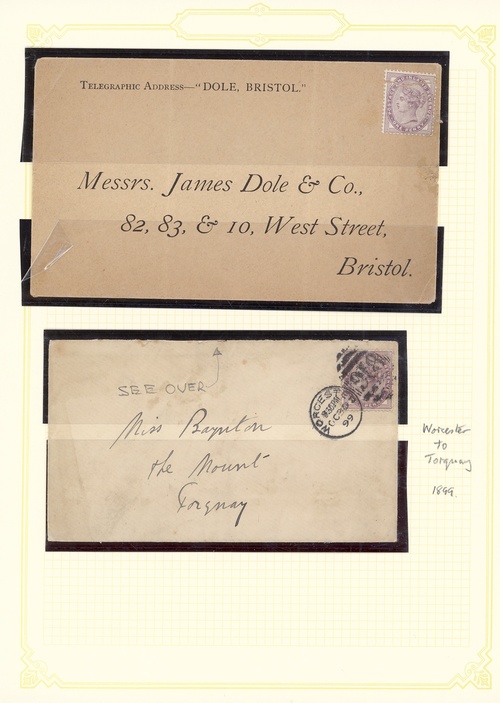 TELEGRAPHIC ADDRESS—"DOLE, BRISTOL."
Messrs. James Dole & Co.,
82, 83, & 10, West Street,
Bristol.
SEE OVER
WORCES
OC
99
Miss Baynton
the Mount
Torquay
Worcester
to
Torquay
1899.